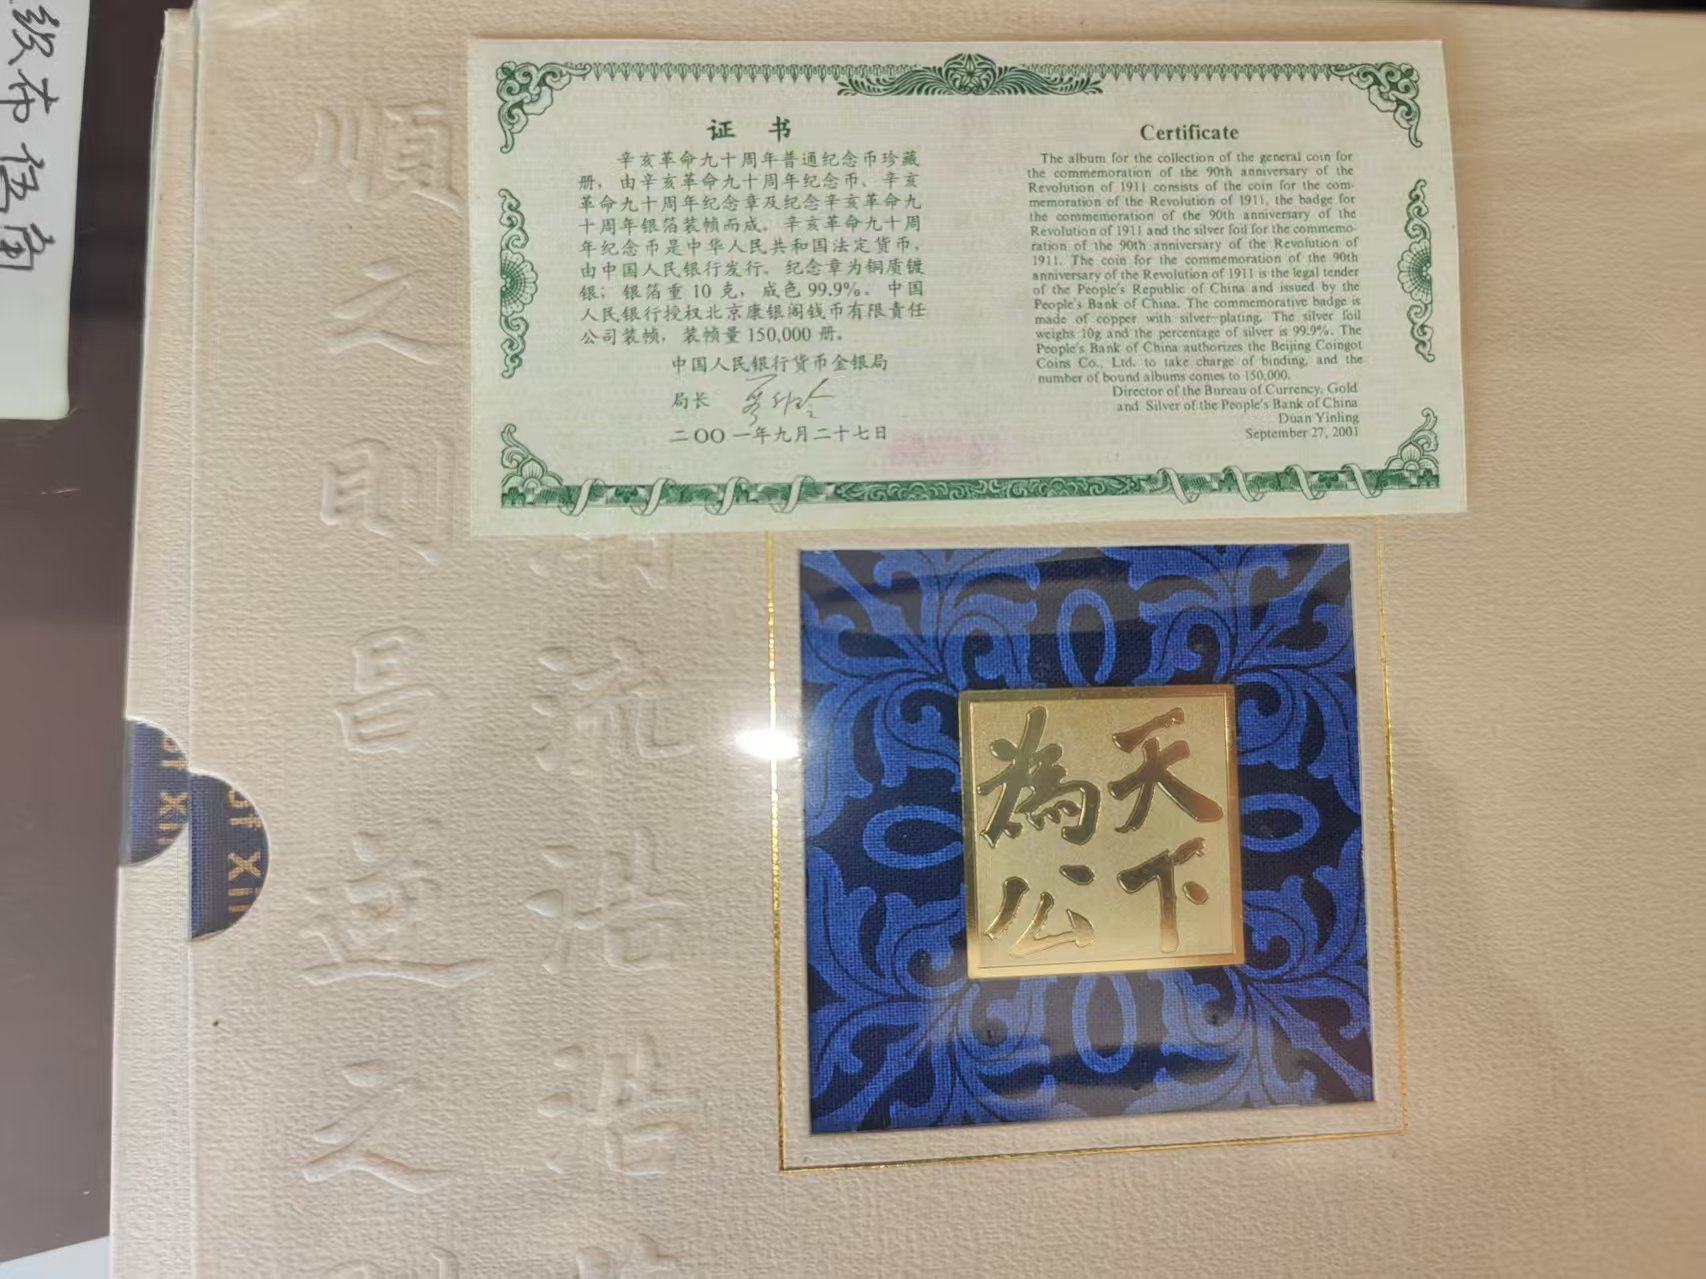 纪币伍角
证 书
辛亥革命九十周年普通纪念币珍藏
册，由辛亥革命九十周年纪念币、辛亥
革命九十周年纪念章及纪念辛亥革命九
十周年银箔装帧而成。辛亥革命九十周
年纪念币是中华人民共和国法定货币，
由中国人民银行发行。纪念章为铜质镀
银；银箔重 10 克，成色 99.9%。中国
人民银行授权北京康银阁钱币有限责任
公司装帧，装帧量 150,000 册。
中国人民银行货币金银局
局长
二〇〇一年九月二十七日
Certificate
The album for the collection of the general coin for
the commemoration of the 90th anniversary of the
Revolution of 1911 consists of the coin for the com-
memoration of the Revolution of 1911, the badge for
the commemoration of the 90th anniversary of the
Revolution of 1911 and the silver foil for the commemo-
ration of the 90th anniversary of the Revolution of
1911. The coin for the commemoration of the 90th
anniversary of the Revolution of 1911 is the legal tender
of the People's Republic of China and issued by the
People's Bank of China. The commemorative badge is
made of copper with silver-plating. The silver foil
weighs 10g and the percentage of silver is 99.9%. The
People's Bank of China authorizes the Beijing Coingot
Coins Co., Ltd. to take charge of binding, and the
number of bound albums comes to 150,000.
Director of the Bureau of Currency, Gold
and Silver of the People's Bank of China
Duan Yinling
September 27, 2001
流浩浩
順之則昌逆之則
天下
為公
of Xin
of Xin